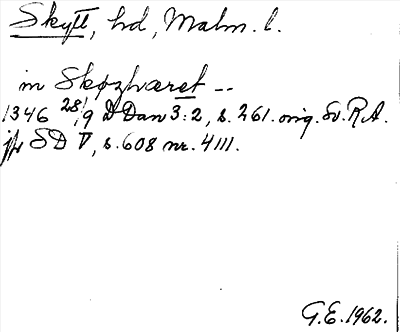 Skytt, hd, Malm. l.
in Skøzhæret --
1346 28/9 DDan 3:2, s. 261. orig. Sv. R.A.
jfr SD V, s. 608 nr. 4111.
G.E. 1962.